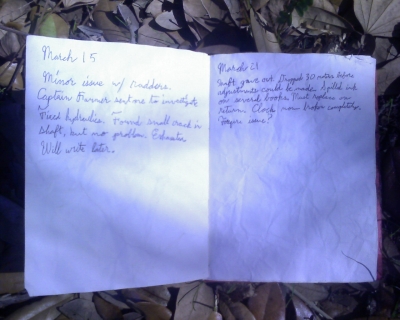 March 15
Minor issue w/ rudders.
Captain sent me to investigate
Fixed hydraulics. Found small crack in
shaft, but no problem.
Will write later.
March 21
Shaft gave out. Dropped 30 meters before
adjustments could be made. Spilled ink
on several books. Must replace on
return. Clock now broken completely.
issue?